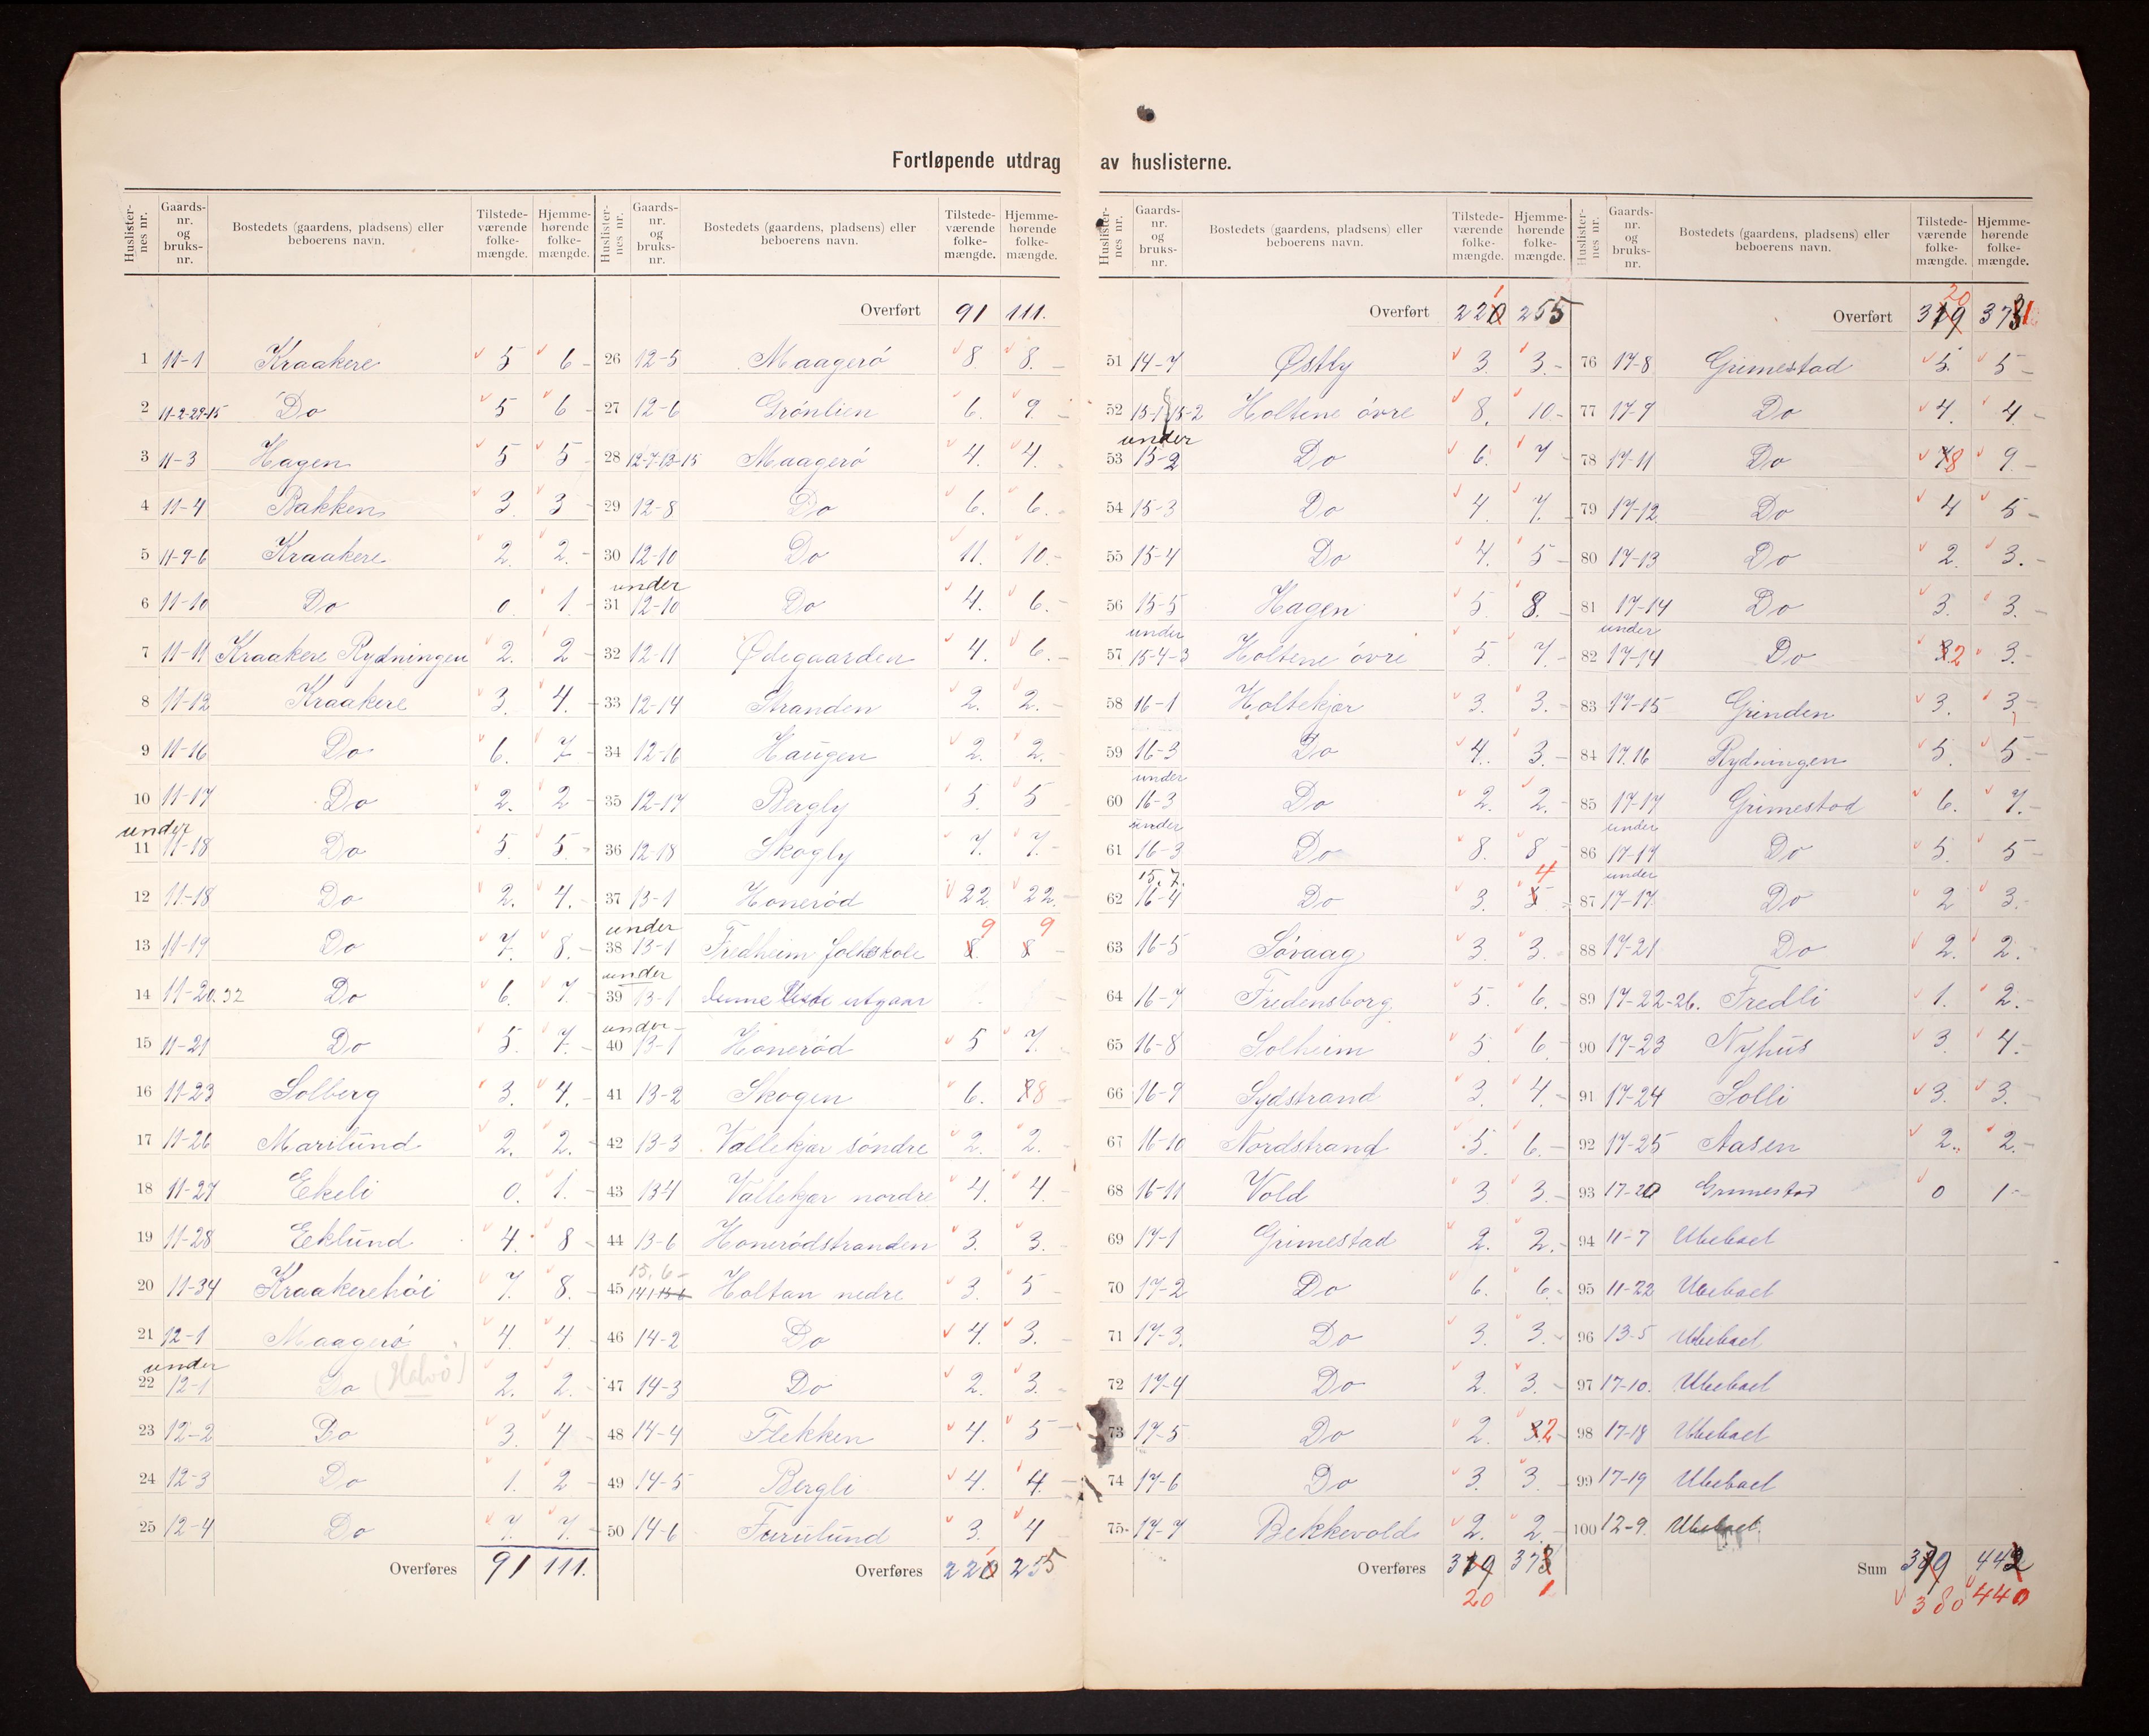 Fortløpende utdrag av huslisterne.
Huslister-nes nr. Gaards-nr. og bruks-nr. Bostedets (gaardens, pladsens) eller beboerens navn. Tilstede-værende folke-mængde. Hjemme-hørende folke-mængde.
1 11-1 Kraakere 5 6
2 11-2-29-15 Do 5 6
3 11-3 Hagen 5 5
4 11-4 Bakken 3. 3
5 11-9-6 Kraakere 2. 2.
6 11-10 Do 0. 1.
7 11-11 Kraakere Rydningen 2. 2
8 11-12 Kraakere 3. 4.
9 11-16 Do 6. 7
10 11-17 Do 2. 2
under
11 11-18 Do 5. 5.
12 11-18 Do 2. 4.
13 11-19 Do 7. 8.
14 11-20.32 Do 6. 7.
15 11-21 Do 5. 7.
16 11-23 Solberg 3. 4.
17 11-26 Marilund 2. 2.
18 11-27 Ekeli 0. 1.
19 11-28 Eklund 4. 8
20 11-34 Kraakerehöi 7. 8.
21 12-1 Maagerö 4. 4.
under
22 12-1 Do (Halvö) 2. 2.
23 12-2 Do 3. 4
24 12-3 Do 1. 2
25 12-4 Do 7. 7.
Overføres 91 111.
Huslister-nes nr. Gaards-nr. og bruks-nr. Bostedets (gaardens, pladsens) eller beboerens navn. Tilstede-værende folke-mængde. Hjemme-hørende folke-mængde.
Overført 91 111.
26 12-5 Maagerö 8. 8.
27 12-6 Grönlien 6. 9.
28 12-7-13-15 Maagerö 4. 4.
29 12-8 Do 6. 6.
30 12-10 Do 11. 10.
under
31 12-10 Do 4. 6.
32 12-11 Ødegaarden 4. 6.
33 12-14 Stranden 2. 2.
34 12-16 Haugen 2. 2.
35 12-17 Bergly 5. 5
36 12-18 Skogly 7. 7.
37 13-1 Honeröd 22 22.
under 9 9
38 13-1 Fredheim folkeskole 8. 8
under
39 13-1 denne liste utgaar
under
40 13-1 Honeröd 5 7.
41 13-2 Skogen 6. 8
42 13-3 Vallekjær söndre 2. 2.
43 13-4 Vallekjær nordre 4. 4.
44 13-6 Honerödstranden 3. 3.
15.6
45 14-1 15-6 Holtan nedre 3. 5
46 14-2 Do 4. 3.
47 14-3 Do 2. 3.
48 14-4 Flekken 4. 5
49 14-5 Bergli 4. 4.
50 14-6 Furulund 3. 4
1
Overføres 220 255
Huslister-nes nr. Gaards-nr. og bruks-nr. Bostedets (gaardens, pladsens) eller beboerens navn. Tilstede-værende folke-mængde. Hjemme-hørende folke-mængde.
1
Overført 220 255
51 14-7 Østby 3. 3.
52 15-1 15-2 Holtene övre 8. 10
under
53 15-2 Do 6. 7
54 15-3 Do 4. 7.
55 15-4 Do 4. 5
56 15-5 Hagen 5. 8.
under
57 15-4-3 Holtene övre 5. 7.
58 16-1 Holtekjær 3. 3.
59 16-3 Do 4. 3.
under
60 16-3 Do 2. 2.
under
61 16-3 Do 8. 8
15.7. 4
62 16-4 Do 3. 5
63 16-5 Sövaag 3. 3.
64 16-7 Fredensborg 5. 6.
65 16-8 Solheim 5. 6.
66 16-9 Sydstrand 3. 4.
67 16-10 Nordstrand 5. 6.
68 16-11 Vold 3. 3.
69 17-1 Grimestad 2. 2.
70 17-2 Do 6. 6.
71 17-3. Do 3. 3.
72 17-4 Do 2. 3.
73 17-5 Do 2. 3. 2
74 17-6 Do 3. 3
75 17-7 Bekkevold 2. 2.
Overføres 319 373
20 1
Huslister-nes nr. Gaards-nr. og bruks-nr. Bostedets (gaardens, pladsens) eller beboerens navn. Tilstede-værende folke-mængde. Hjemme-hørende folke-mængde.
20
Overført 319 373 1
76 17-8 Grimestad 5. 5
77 17-9 Do 4. 4.
78 17-11 Do 7 8 9
79 17-12 Do 4 5
80 17-13 Do 2. 3.
81 17-14 Do 3. 3.
under
82 17-14 Do 3. 2 3.
83 17-15 Grinden 3. 3.
84 17.16 Rydningen 5. 5
85 17-17 Grimestad 6. 7.
under
86 17-17 Do 5. 5
under
87 17-17 Do 2 3.
88 17-21 Do 2. 2.
89 17-22-26. Fredli 1. 2.
90 17-23 Nyhus 3. 4.
91 17-24 Solli 3. 3.
92 17-25 Aasen 2. 2.
93 17-20 Grimestad 0 1
94 11-7 Ubeboet
95 11-22 Ubeboet
96 13-5 Ubeboet
97 17-10. Ubeboet
98 17-18 Ubeboet
99 17-19 Ubeboet
100 12-9. Ubeboet.
Sum 379 442
380 440